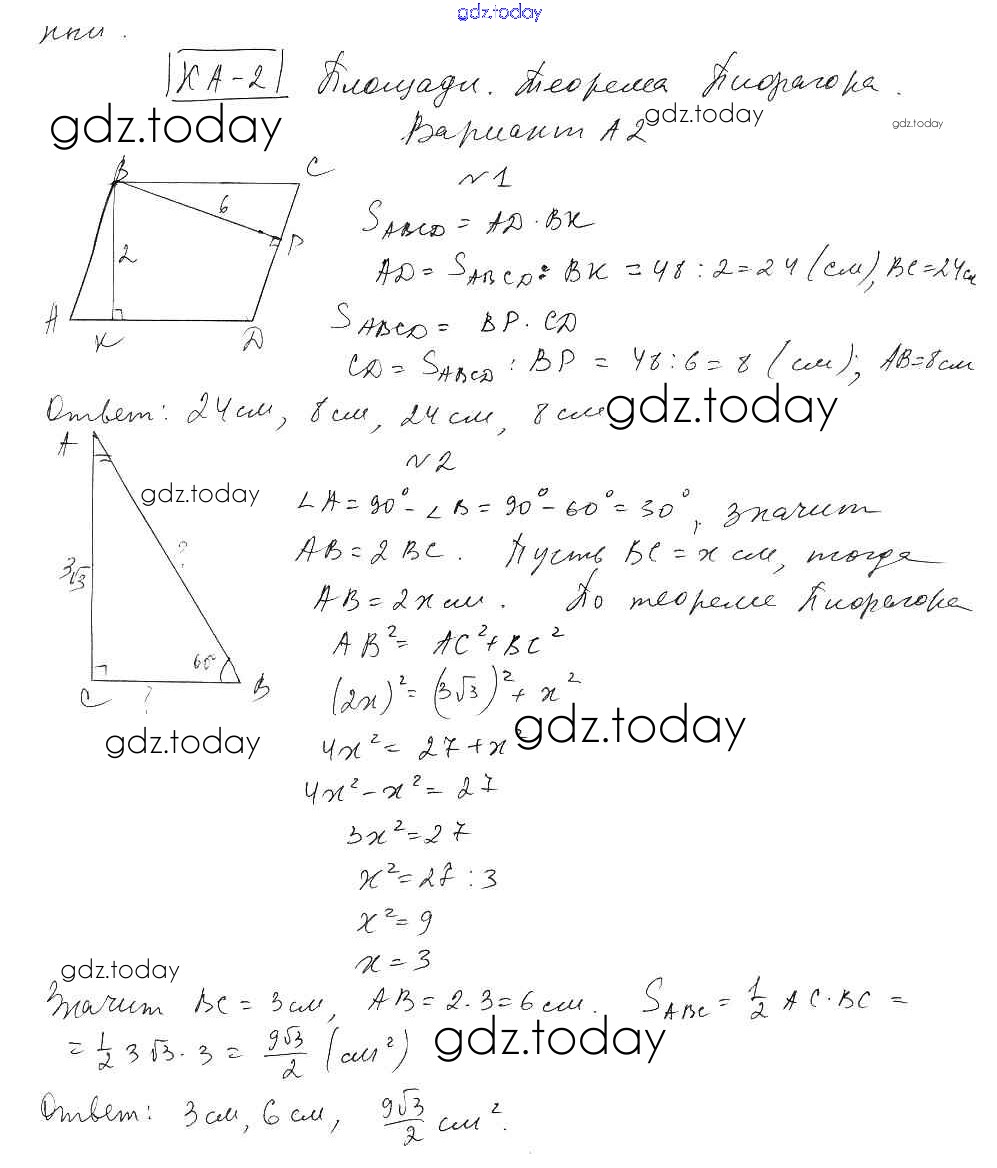 gdz.today
КА-2 Площади. Теорема Пифагора.
gdz.today gdz.today gdz.today
Вариант А2
B C
№1
6
2
P
A K D
S_ABCD = AD · BK
AD = S_ABCD : BK = 48 : 2 = 24 (см), BC = 24см
S_ABCD = BP · CD
CD = S_ABCD : BP = 48 : 6 = 8 (см); AB = 8см
Ответ: 24 см, 8 см, 24 см, 8 см
gdz.today
№2
A
gdz.today
?
3√3
60°
C ? B
gdz.today
∠A = 90° - ∠B = 90° - 60° = 30°, значит
AB = 2BC. Пусть BC = x см, тогда
AB = 2x см. По теореме Пифагора
AB² = AC² + BC²
(2x)² = (3√3)² + x²
gdz.today
4x² = 27 + x²
4x² - x² = 27
3x² = 27
x² = 27 : 3
x² = 9
x = 3
gdz.today
Значит BC = 3 см, AB = 2·3 = 6 см. S_ABC = 1/2 AC · BC =
= 1/2 3√3 · 3 = 9√3/2 (см²)
gdz.today
Ответ: 3 см, 6 см, 9√3/2 см².